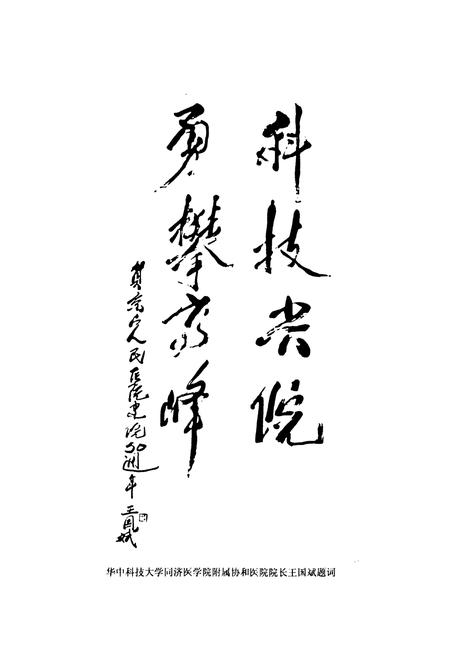 科技兴院
勇攀高峰
贺市人民医院建院50週年 王国斌
华中科技大学同济医学院附属协和医院院长王国斌题词